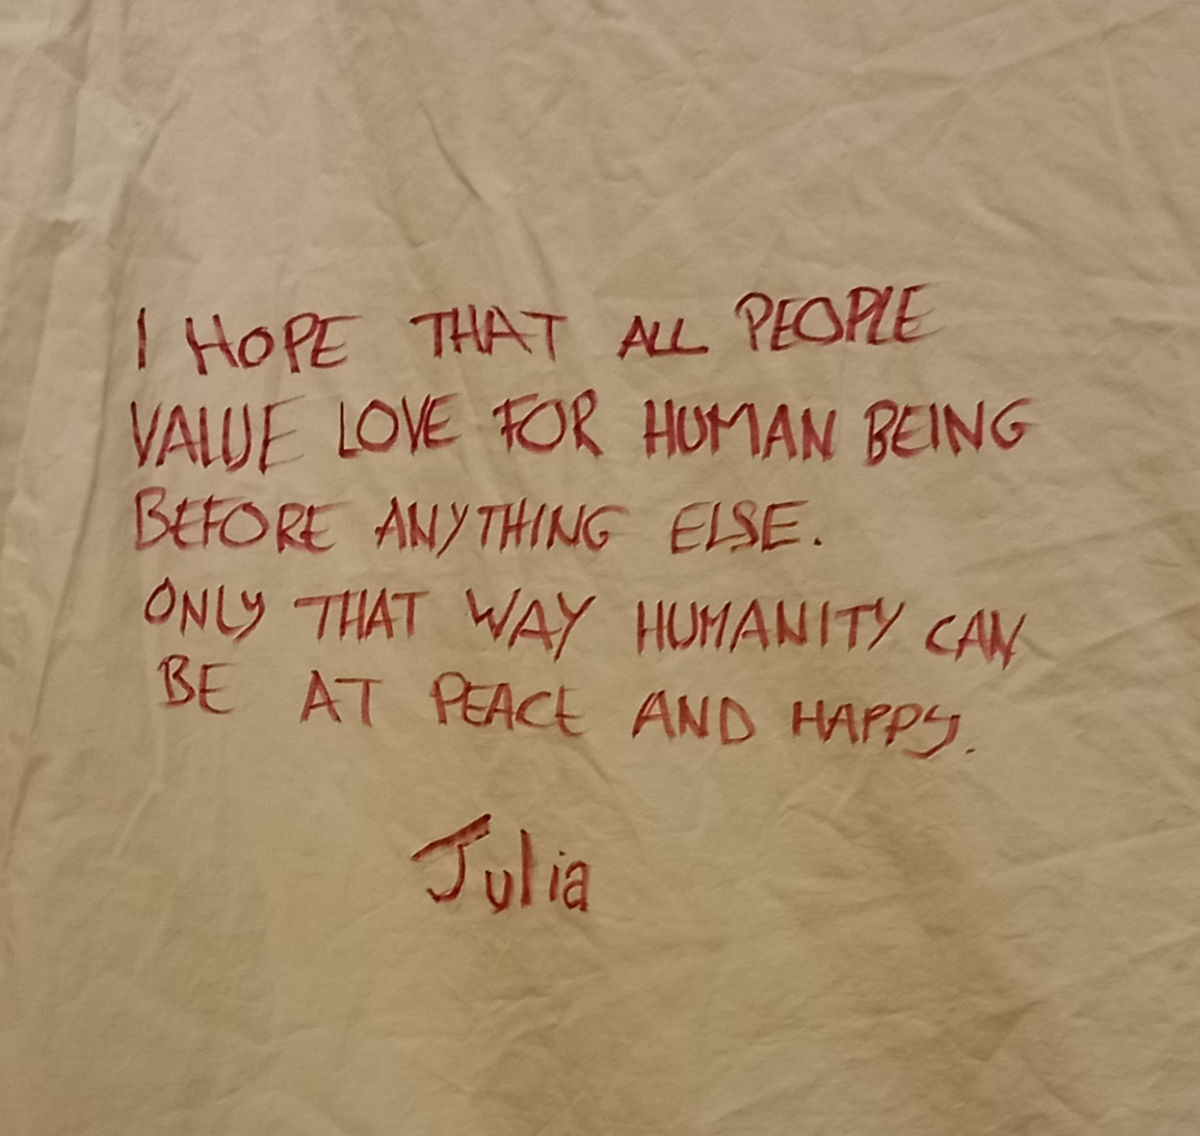 I HOPE THAT ALL PEOPLE
VALUE LOVE FOR HUMAN BEING
BEFORE ANYTHING ELSE.
ONLY THAT WAY HUMANITY CAN
BE AT PEACE AND HAPPY.
Julia